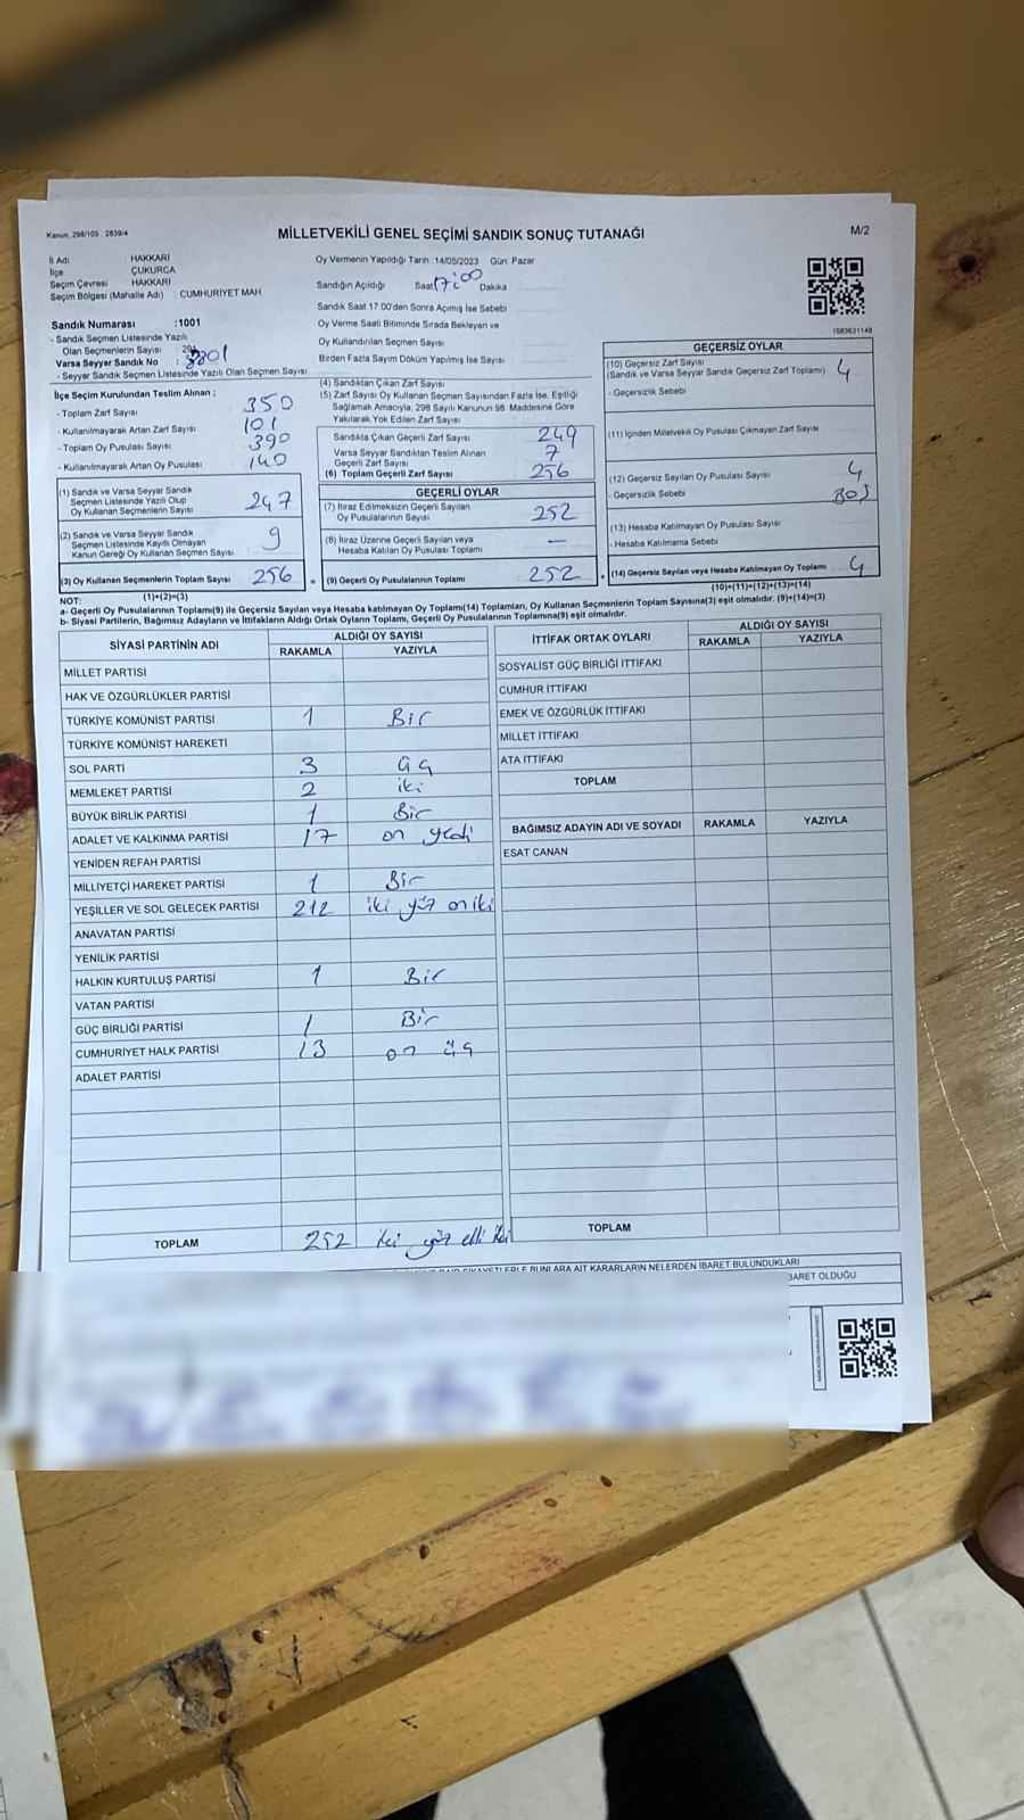 Kanun: 298/105 : 2839/4
MİLLETVEKİLİ GENEL SEÇİMİ SANDIK SONUÇ TUTANAĞI
M/2
İl Adı HAKKARİ
İlçe ÇUKURCA
Seçim Çevresi HAKKARİ
Seçim Bölgesi (Mahalle Adı) CUMHURİYET MAH
Sandık Numarası :1001
- Sandık Seçmen Listesinde Yazılı
Olan Seçmenlerin Sayısı
Varsa Seyyar Sandık No :
- Seyyar Sandık Seçmen Listesinde Yazılı Olan Seçmen Sayısı
Oy Vermenin Yapıldığı Tarih :14/05/2023 Gün: Pazar
Sandığın Açıldığı Saat 17:00 Dakika
Sandık Saat 17.00'den Sonra Açılmış İse Sebebi
Oy Verme Saati Bitiminde Sırada Bekleyen ve
Oy Kullandırılan Seçmen Sayısı
Birden Fazla Sayım Döküm Yapılmış İse Sayısı
İlçe Seçim Kurulundan Teslim Alınan ;
- Toplam Zarf Sayısı 350
- Kullanılmayarak Artan Zarf Sayısı 101
- Toplam Oy Pusulası Sayısı 390
- Kullanılmayarak Artan Oy Pusulası 140
(1) Sandık ve Varsa Seyyar Sandık
Seçmen Listesinde Yazılı Olup
Oy Kullanan Seçmenlerin Sayısı 247
(2) Sandık ve Varsa Seyyar Sandık
Seçmen Listesinde Kaydı Olmayan
Kanun Gereği Oy Kullanan Seçmen Sayısı 9
(3) Oy Kullanan Seçmenlerin Toplam Sayısı 256
(4) Sandıktan Çıkan Zarf Sayısı
(5) Zarf Sayısı Oy Kullanan Seçmen Sayısından Fazla İse, Eşitliği
Sağlamak Amacıyla, 298 Sayılı Kanunun 98. Maddesine Göre
Yakılarak Yok Edilen Zarf Sayısı
Sandıkta Çıkan Geçerli Zarf Sayısı 249
Varsa Seyyar Sandıktan Teslim Alınan
Geçerli Zarf Sayısı 7
(6) Toplam Geçerli Zarf Sayısı 256
GEÇERLİ OYLAR
(7) İtiraz Edilmeksizin Geçerli Sayılan
Oy Pusulalarının Sayısı 252
(8) İtiraz Üzerine Geçerli Sayılan veya
Hesaba Katılan Oy Pusulası Toplamı —
(9) Geçerli Oy Pusulalarının Toplamı 252
GEÇERSİZ OYLAR
(10) Geçersiz Zarf Sayısı
(Sandık ve Varsa Seyyar Sandık Geçersiz Zarf Toplamı) 4
- Geçersizlik Sebebi
(11) İçinden Milletvekili Oy Pusulası Çıkmayan Zarf Sayısı
(12) Geçersiz Sayılan Oy Pusulası Sayısı 4
- Geçersizlik Sebebi
(13) Hesaba Katılmayan Oy Pusulası Sayısı
- Hesaba Katılmama Sebebi
(14) Geçersiz Sayılan veya Hesaba Katılmayan Oy Toplamı 4
NOT: (1)+(2)=(3)
(10)+(11)+(12)+(13)=(14)
a- Geçerli Oy Pusulalarının Toplamı(9) ile Geçersiz Sayılan veya Hesaba katılmayan Oy Toplamı(14) Toplamları, Oy Kullanan Seçmenlerin Toplam Sayısına(3) eşit olmalıdır. (9)+(14)=(3)
b- Siyasi Partilerin, Bağımsız Adayların ve İttifakların Aldığı Ortak Oyların Toplamı, Geçerli Oy Pusulalarının Toplamına(9) eşit olmalıdır.
SİYASİ PARTİNİN ADI ALDIĞI OY SAYISI
RAKAMLA YAZIYLA
MİLLET PARTİSİ
HAK VE ÖZGÜRLÜKLER PARTİSİ
TÜRKİYE KOMÜNİST PARTİSİ 1 Bir
TÜRKİYE KOMÜNİST HAREKETİ
SOL PARTİ 3 üç
MEMLEKET PARTİSİ 2 iki
BÜYÜK BİRLİK PARTİSİ 1 Bir
ADALET VE KALKINMA PARTİSİ 17 on yedi
YENİDEN REFAH PARTİSİ
MİLLİYETÇİ HAREKET PARTİSİ 1 Bir
YEŞİLLER VE SOL GELECEK PARTİSİ 212 iki yüz on iki
ANAVATAN PARTİSİ
YENİLİK PARTİSİ
HALKIN KURTULUŞ PARTİSİ 1 Bir
VATAN PARTİSİ
GÜÇ BİRLİĞİ PARTİSİ 1 Bir
CUMHURİYET HALK PARTİSİ 13 on üç
ADALET PARTİSİ
TOPLAM 252 iki yüz elli iki
İTTİFAK ORTAK OYLARI ALDIĞI OY SAYISI
RAKAMLA YAZIYLA
SOSYALİST GÜÇ BİRLİĞİ İTTİFAKI
CUMHUR İTTİFAKI
EMEK VE ÖZGÜRLÜK İTTİFAKI
MİLLET İTTİFAKI
ATA İTTİFAKI
TOPLAM
BAĞIMSIZ ADAYIN ADI VE SOYADI RAKAMLA YAZIYLA
ESAT CANAN
TOPLAM
BUNLARA AİT KARARLARIN NELERDEN İBARET BULUNDUKLARI
BARET OLDUĞU